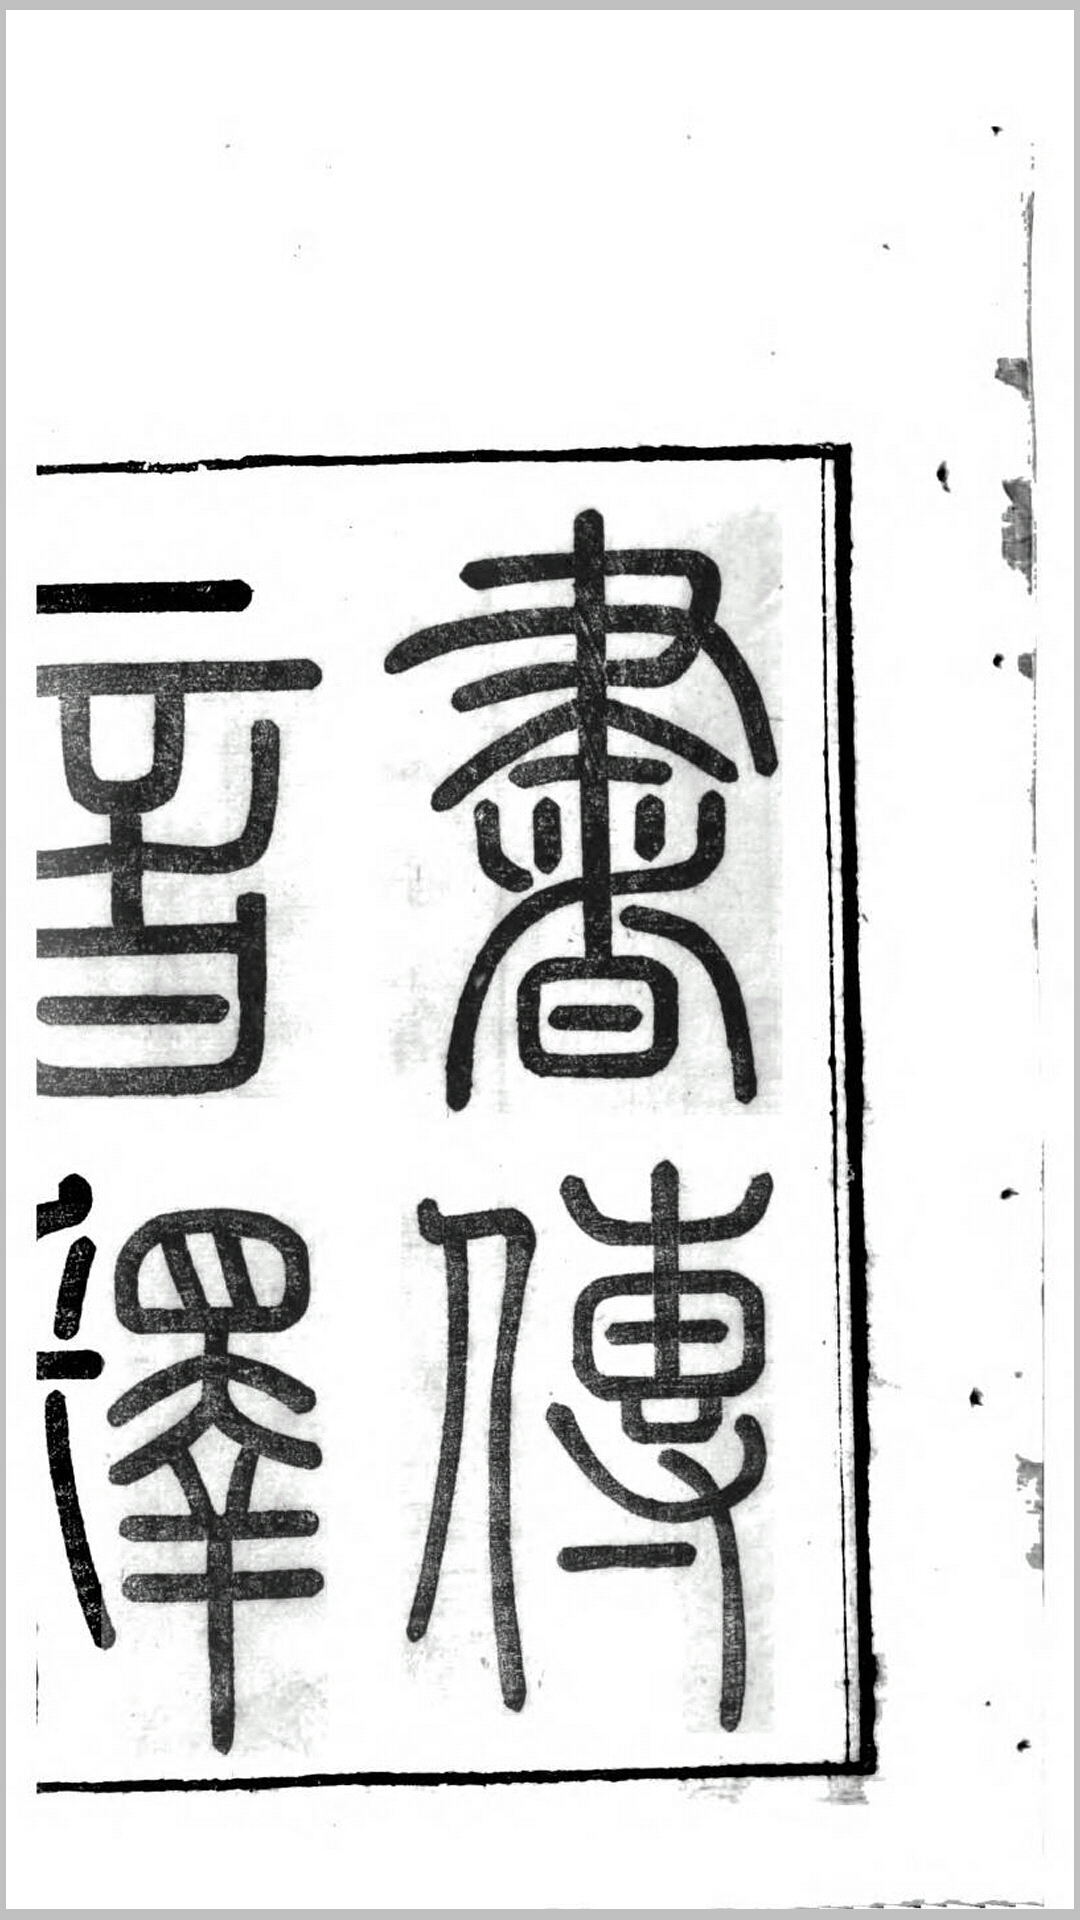 書傳
音釋